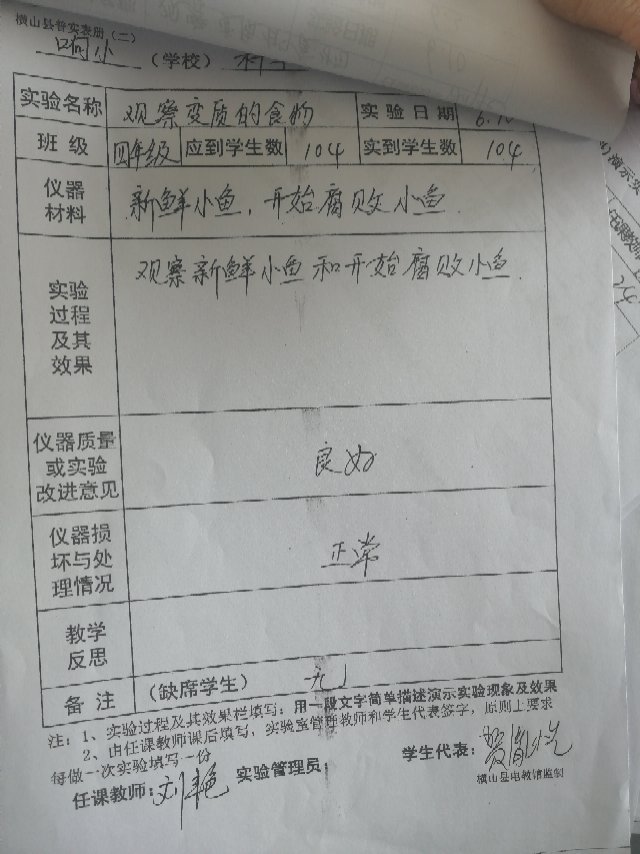 横山县普实表册（二）
响小（学校）
实验名称 观察变质的食物 实验日期 6.10
班级 四年级 应到学生数 104 实到学生数 104
仪器材料 新鲜小鱼，开始腐败小鱼.
实验过程及其效果 观察新鲜小鱼和开始腐败小鱼.
仪器质量或实验改进意见 良好
仪器损坏与处理情况 正常
教学反思
备注 （缺席学生） 无
注：1、实验过程及其效果栏填写：用一段文字简单描述演示实验现象及效果
2、由任课教师课后填写，实验室管理教师和学生代表签字，原则上要求
每做一次实验填写一份
任课教师：刘艳 实验管理员： 学生代表：
横山县电教馆监制